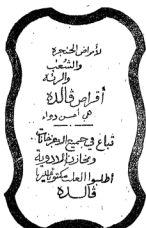 لأمراض الحنجرة
والشعب
والرئة
أقراص ڤالدة
هي أحسن دواء
تباع في جميع الاجزخانات
ومخازن الادوية
أطلبوا العلب مكتوب عليها
ڤالدة